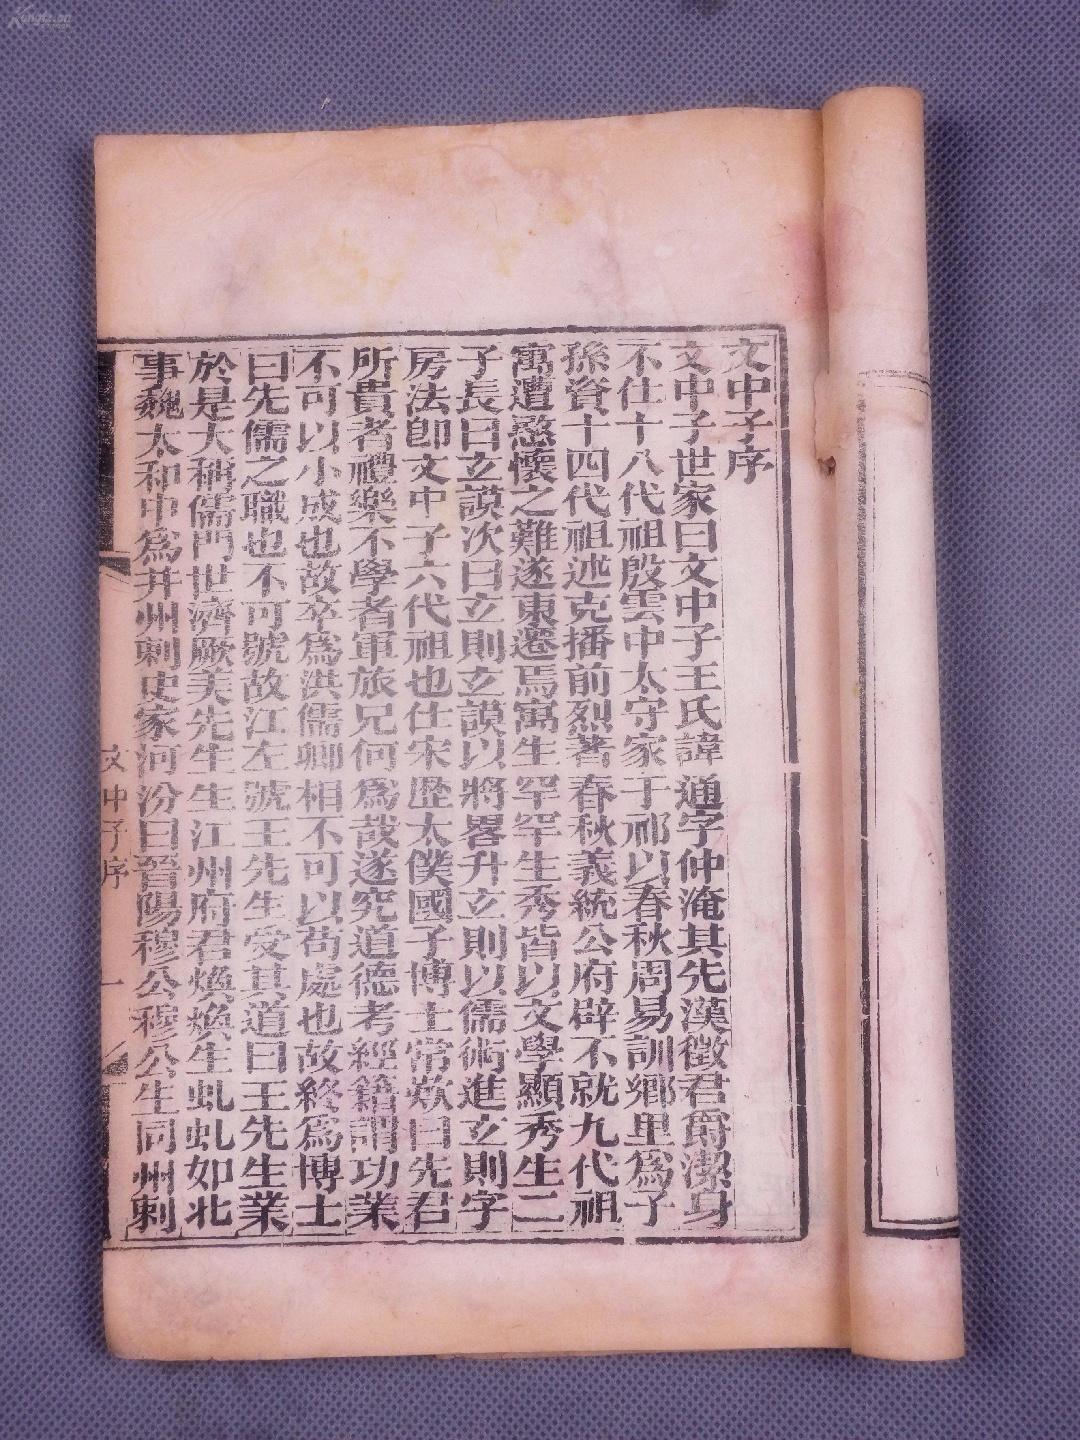 文中子序
文中子世家曰文中子王氏諱通字仲淹其先漢徵君爵潔身
不仕十八代祖殷雲中太守家于祁以春秋周易訓鄉里爲子
孫資十四代祖述克播前烈著春秋義統公府辟不就九代祖
寓遭愍懷之難遂東遷焉寓生罕罕生秀皆以文學顯秀生二
子長曰玄謨次曰玄則玄謨以將畧升玄則以儒術進玄則字
房法卽文中子六代祖也仕宋歷太僕國子博士常歎曰先君
所貴者禮樂不學者軍旅兄何爲哉遂究道德考經籍謂功業
不可以小成也故卒爲洪儒卿相不可以苟處也故終爲博士
曰先儒之職也不可號故江左號王先生受其道曰王先生業
於是大稱儒門世濟厥美先生生江州府君煥煥生虬虬如北
事魏太和中爲并州刺史家河汾曰晉陽穆公穆公生同州刺
文中子序
一